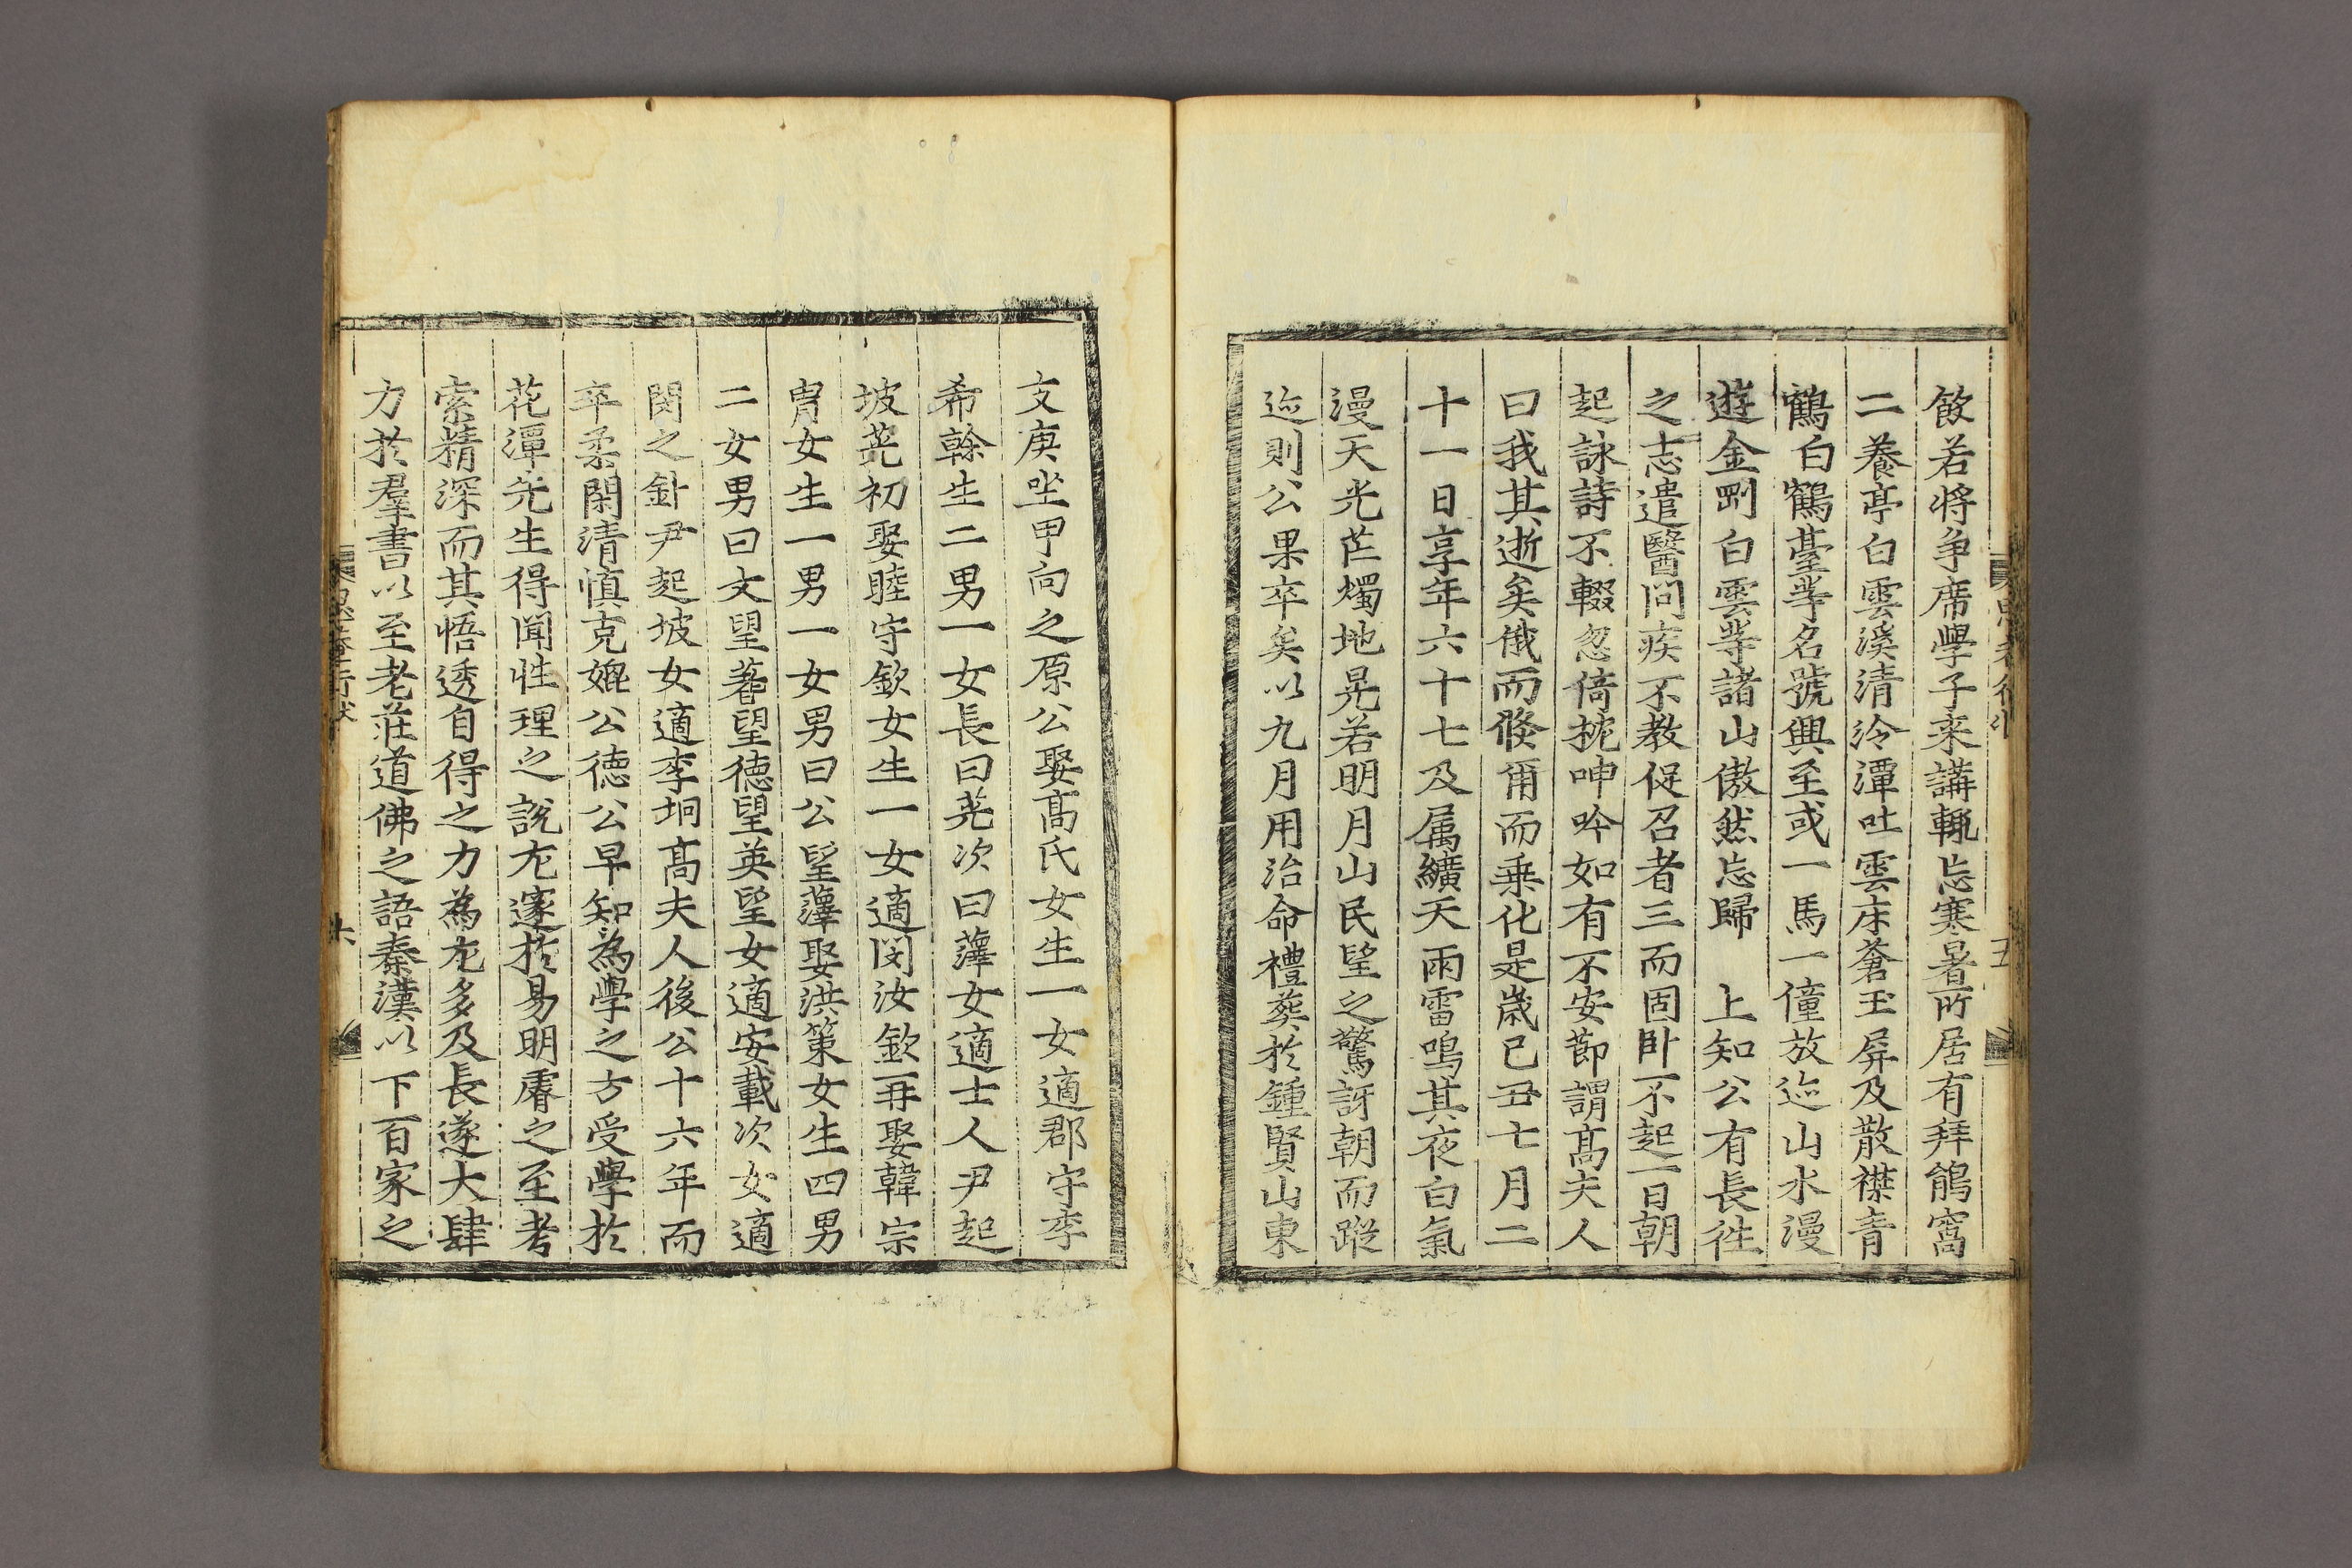 飲若将争席學子来講輒忘寒暑所居有拜鵑窩
二養亭白雲溪清泠潭吐雲床蒼玉屏及散襟青
鶴白鶴臺等名號興至或一馬一僮放迹山水漫
遊金剛白雲等諸山傲然忘歸 上知公有長徃
之志遣醫問疾不教促召者三而固卧不起一日朝
起詠詩不輟忽倚枕呻吟如有不安節謂髙夫人
曰我其逝矣俄而倐爾而乗化是歲己丑七月二
十一日享年六十七及属纊天雨雷鳴其夜白氣
漫天光芒燭地晃若明月山民望之驚訝朝而蹤
迹則公果卒矣以九月用治命禮葬於鍾賢山東
五
文庚坐甲向之原公娶髙氏女生一女適郡守李
希榦生二男一女長曰茪次曰蕇女適士人尹起
坡茪初娶睦守欽女生一女適閔汝欽再娶韓宗
冑女生一男一女男曰公望蕇娶洪策女生四男
二女男曰文望蓍望德望英望女適安載次女適
閔之釪尹起坡女適李坰髙夫人後公十六年而
卒柔閑清慎克媲公德公早知為學之方受學於
花潭先生得聞性理之說尤邃於易明睿之至考
索精深而其悟透自得之力為尤多及長遂大肆
力於羣書以至老莊道佛之語秦漢以下百家之
六